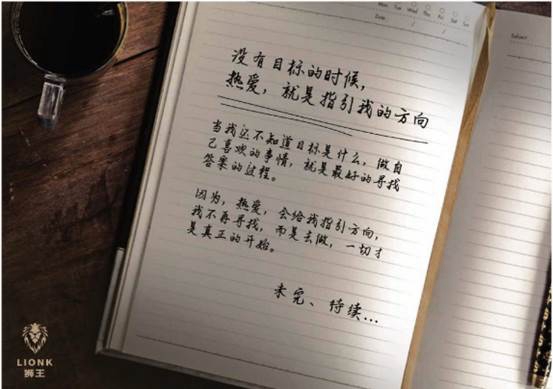 Mon Tue Wed Thu Fri Sat Sun
Date / /
没有目标的时候，
热爱，就是指引我的方向
当我还不知道目标是什么，做自
己喜欢的事情，就是最好的寻找
答案的过程。
因为，热爱，会给我指引方向，
我不再寻找，而是去做，一切才
是真正的开始。
未完、待续...
Subject:
LIONK
狮王